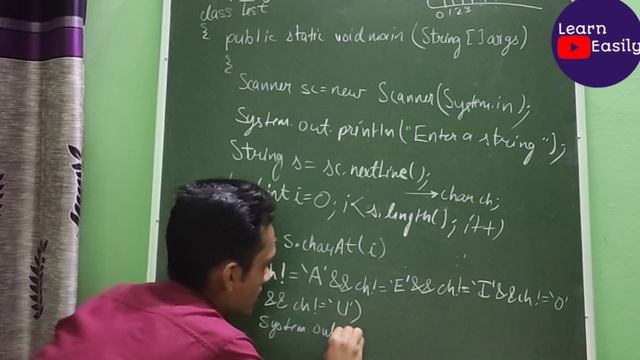 class Test
0 1 2 3
Learn
Easily
{ public static void main (String []args)
{
Scanner sc = new Scanner(System.in);
System.out.println("Enter a string");
String s = sc.nextLine();
char ch;
int i=0; i<s.length(); i++)
s.charAt(i)
ch!='A' && ch!='E' && ch!='I' && ch!='O'
&& ch!='U')
System out